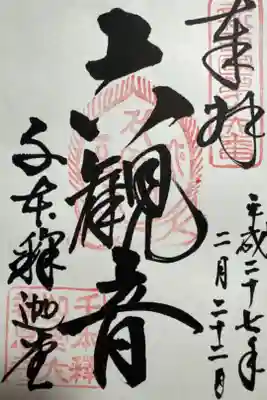 奉拝
平成二十七年
二月二十二日
六観音
千本釈迦堂